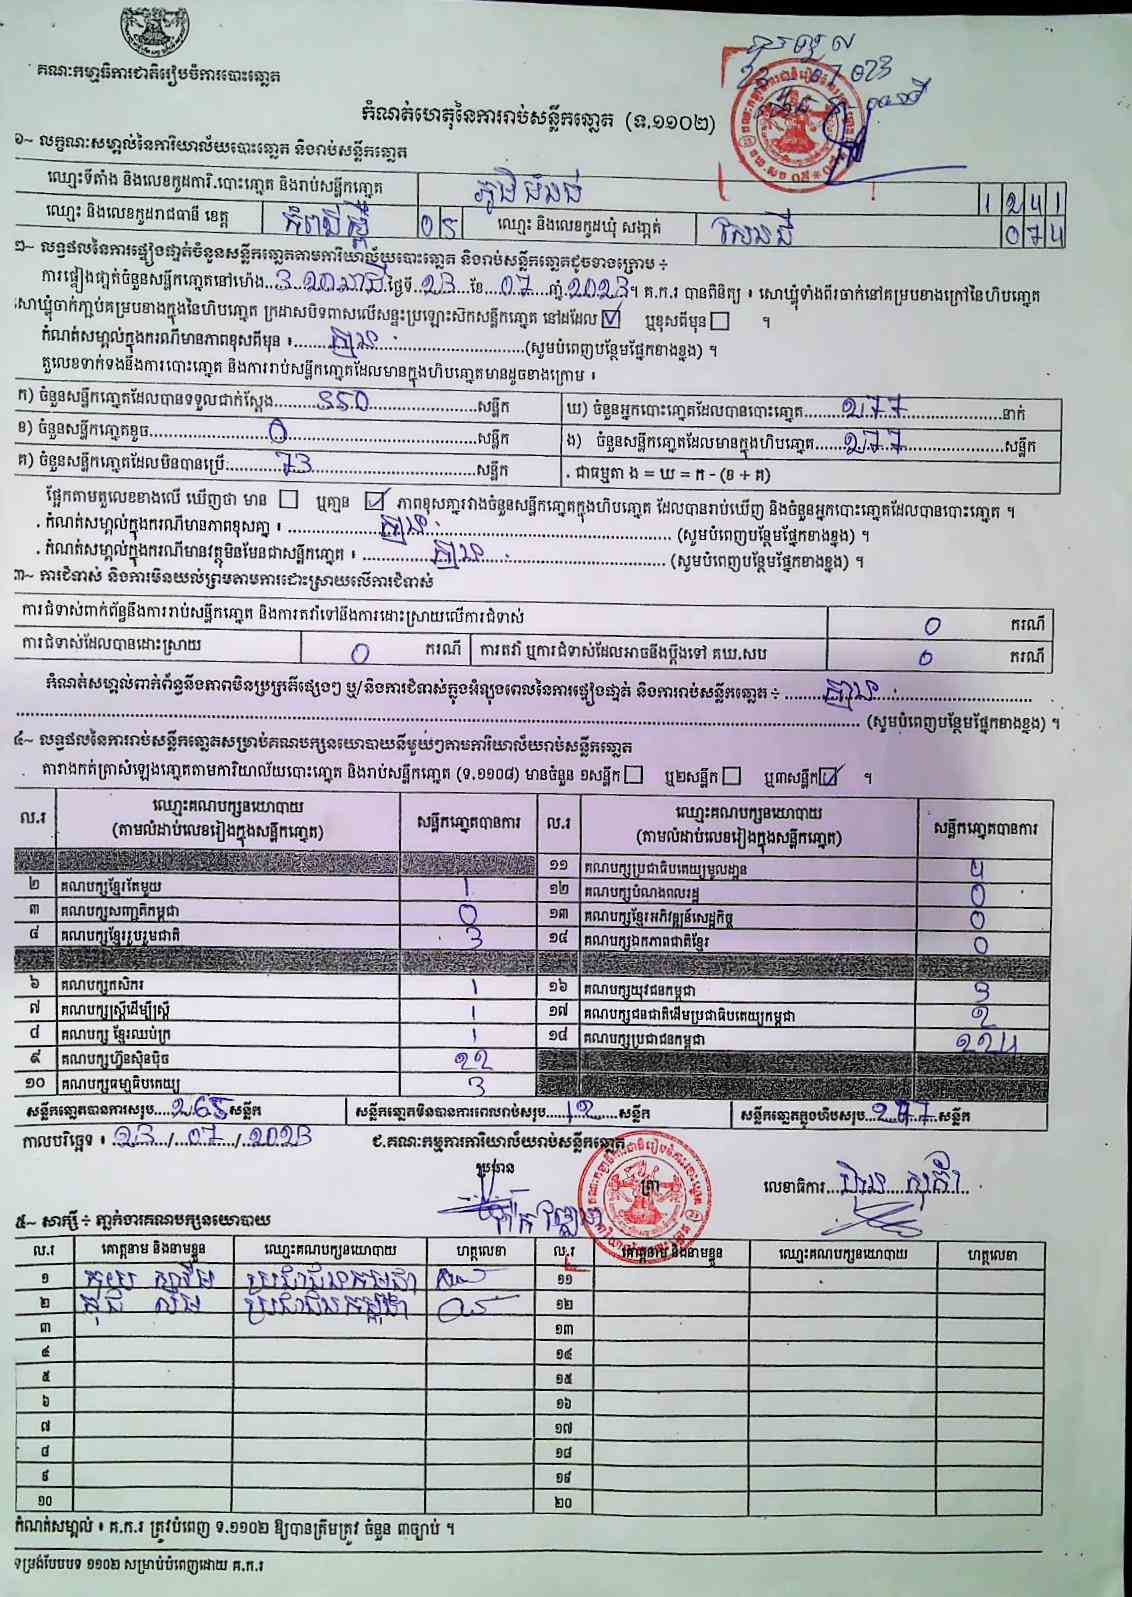 គណៈកម្មាធិការជាតិរៀបចំការបោះឆ្នោត
កំណត់ហេតុនៃការរាប់សន្លឹកឆ្នោត (ទ.១១០២)
១~ លក្ខណៈសម្គាល់នៃការិយាល័យបោះឆ្នោត និងរាប់សន្លឹកឆ្នោត
ឈ្មោះទីតាំង និងលេខកូដការិ.បោះឆ្នោត និងរាប់សន្លឹកឆ្នោត 1 2 4 1
ឈ្មោះ និងលេខកូដរាជធានី ខេត្ត កំពង់ស្ពឺ 0 5 ឈ្មោះ និងលេខកូដឃុំ សង្កាត់ 0 7 4
២~ លទ្ធផលនៃការផ្ទៀងផ្ទាត់ចំនួនសន្លឹកឆ្នោតតាមការិយាល័យបោះឆ្នោត និងរាប់សន្លឹកឆ្នោតដូចខាងក្រោម ÷
ការផ្ទៀងផ្ទាត់ចំនួនសន្លឹកឆ្នោតនៅម៉ោង 3 20 នាទី ថ្ងៃទី 23 ខែ 07 ឆ្នាំ 2023 ។ គ.ក.រ បានពិនិត្យ ៖ សោឃ្លុំទាំងពីរចាក់នៅគម្របខាងក្រៅនៃហិបឆ្នោត
សោឃ្លុំចាក់ភ្ជាប់គម្របខាងក្នុងនៃហិបឆ្នោត ក្រដាសបិទពាសលើសន្ទះប្រឡោះសិកសន្លឹកឆ្នោត នៅដដែល ☑ ឬខុសពីមុន ☐ ។
កំណត់សម្គាល់ក្នុងករណីមានភាពខុសពីមុន ៖ គ្មាន (សូមបំពេញបន្ថែមផ្នែកខាងខ្នង) ។
តួលេខទាក់ទងនឹងការបោះឆ្នោត និងការរាប់សន្លឹកឆ្នោតដែលមានក្នុងហិបឆ្នោតមានដូចខាងក្រោម ៖
ក) ចំនួនសន្លឹកឆ្នោតដែលបានទទួលជាក់ស្តែង 350 សន្លឹក ឃ) ចំនួនអ្នកបោះឆ្នោតដែលបានបោះឆ្នោត 277 នាក់
ខ) ចំនួនសន្លឹកឆ្នោតខូច 0 សន្លឹក ង) ចំនួនសន្លឹកឆ្នោតដែលមានក្នុងហិបឆ្នោត 277 សន្លឹក
គ) ចំនួនសន្លឹកឆ្នោតដែលមិនបានប្រើ 73 សន្លឹក . ជាធម្មតា ង = ឃ = ក - (ខ + គ)
ផ្អែកតាមតួលេខខាងលើ ឃើញថា មាន ☐ ឬគ្មាន ☑ ភាពខុសគ្នារវាងចំនួនសន្លឹកឆ្នោតក្នុងហិបឆ្នោត ដែលបានរាប់ឃើញ និងចំនួនអ្នកបោះឆ្នោតដែលបានបោះឆ្នោត ។
. កំណត់សម្គាល់ក្នុងករណីមានភាពខុសគ្នា ៖ គ្មាន (សូមបំពេញបន្ថែមផ្នែកខាងខ្នង) ។
. កំណត់សម្គាល់ក្នុងករណីមានវត្ថុមិនមែនជាសន្លឹកឆ្នោត ៖ គ្មាន (សូមបំពេញបន្ថែមផ្នែកខាងខ្នង) ។
៣~ ការជំទាស់ និងការមិនយល់ព្រមតាមការដោះស្រាយលើការជំទាស់
ការជំទាស់ពាក់ព័ន្ធនឹងការរាប់សន្លឹកឆ្នោត និងការតវ៉ាទៅនឹងការដោះស្រាយលើការជំទាស់ 0 ករណី
ការជំទាស់ដែលបានដោះស្រាយ 0 ករណី ការតវ៉ា ឬការជំទាស់ដែលអាចនឹងប្តឹងទៅ គឃ.សប 0 ករណី
កំណត់សម្គាល់ពាក់ព័ន្ធនឹងភាពមិនប្រក្រតីផ្សេងៗ ឬ/និងការជំទាស់ក្នុងអំឡុងពេលនៃការផ្ទៀងផ្ទាត់ និងការរាប់សន្លឹកឆ្នោត ÷ គ្មាន
(សូមបំពេញបន្ថែមផ្នែកខាងខ្នង) ។
៤~ លទ្ធផលនៃការរាប់សន្លឹកឆ្នោតសម្រាប់គណបក្សនយោបាយនីមួយៗតាមការិយាល័យរាប់សន្លឹកឆ្នោត
តារាងកត់ត្រាសំឡេងឆ្នោតតាមការិយាល័យបោះឆ្នោត និងរាប់សន្លឹកឆ្នោត (ទ.១១០៨) មានចំនួន ១សន្លឹក ☐ ឬ២សន្លឹក ☐ ឬ៣សន្លឹក ☑ ។
ល.រ ឈ្មោះគណបក្សនយោបាយ (តាមលំដាប់លេខរៀងក្នុងសន្លឹកឆ្នោត) សន្លឹកឆ្នោតបានការ ល.រ ឈ្មោះគណបក្សនយោបាយ (តាមលំដាប់លេខរៀងក្នុងសន្លឹកឆ្នោត) សន្លឹកឆ្នោតបានការ
១១ គណបក្សប្រជាធិបតេយ្យមូលដ្ឋាន 4
២ គណបក្សខ្មែរតែមួយ 1 ១២ គណបក្សបំណងពលរដ្ឋ 0
៣ គណបក្សសញ្ជាតិកម្ពុជា 0 ១៣ គណបក្សខ្មែរអភិវឌ្ឍន៍សេដ្ឋកិច្ច 0
៤ គណបក្សខ្មែររួបរួមជាតិ 3 ១៤ គណបក្សឯកភាពជាតិខ្មែរ 0
៦ គណបក្សកសិករ 1 ១៦ គណបក្សយុវជនកម្ពុជា 3
៧ គណបក្សស្ត្រីដើម្បីស្ត្រី 1 ១៧ គណបក្សជនជាតិដើមប្រជាធិបតេយ្យកម្ពុជា 2
៨ គណបក្ស ខ្មែរឈប់ក្រ 1 ១៨ គណបក្សប្រជាជនកម្ពុជា 224
៩ គណបក្សហ៊្វុនស៊ិនប៉ិច 22
១០ គណបក្សធម្មាធិបតេយ្យ 3
សន្លឹកឆ្នោតបានការសរុប 265 សន្លឹក សន្លឹកឆ្នោតមិនបានការពេលរាប់សរុប 12 សន្លឹក សន្លឹកឆ្នោតក្នុងហិបសរុប 277 សន្លឹក
កាលបរិច្ឆេទ ៖ 23 / 07 / 2023 ជ.គណៈកម្មការការិយាល័យរាប់សន្លឹកឆ្នោត
ប្រធាន ត្រា លេខាធិការ
៥~ សាក្សី ÷ ភ្នាក់ងារគណបក្សនយោបាយ
ល.រ គោត្តនាម និងនាមខ្លួន ឈ្មោះគណបក្សនយោបាយ ហត្ថលេខា ល.រ គោត្តនាម និងនាមខ្លួន ឈ្មោះគណបក្សនយោបាយ ហត្ថលេខា
១ ប្រជាជនកម្ពុជា ១១
២ ប្រជាជនកម្ពុជា ១២
៣ ១៣
៤ ១៤
៥ ១៥
៦ ១៦
៧ ១៧
៨ ១៨
៩ ១៩
១០ ២០
កំណត់សម្គាល់ ៖ គ.ក.រ ត្រូវបំពេញ ទ.១១០២ ឱ្យបានត្រឹមត្រូវ ចំនួន ៣ច្បាប់ ។
ទម្រង់បែបបទ ១១០២ សម្រាប់បំពេញដោយ គ.ក.រ